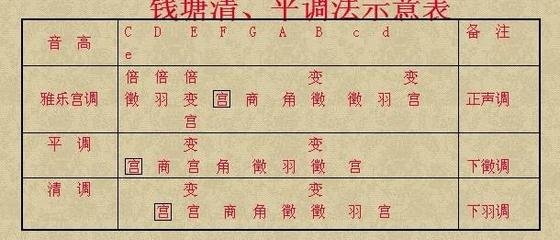 钱塘清、平调法示意表
音 高 C D E F G A B c d 备 注
e
倍 倍 倍 变 变
雅乐宫调 徵 羽 变 宫 商 角 徵 徵 羽 宫 正声调
宫
平 调 变 变
宫 商 宫 角 徵 羽 徵 宫 下徵调
清 调 变 变
宫 宫 商 角 徵 徵 羽 宫 下羽调